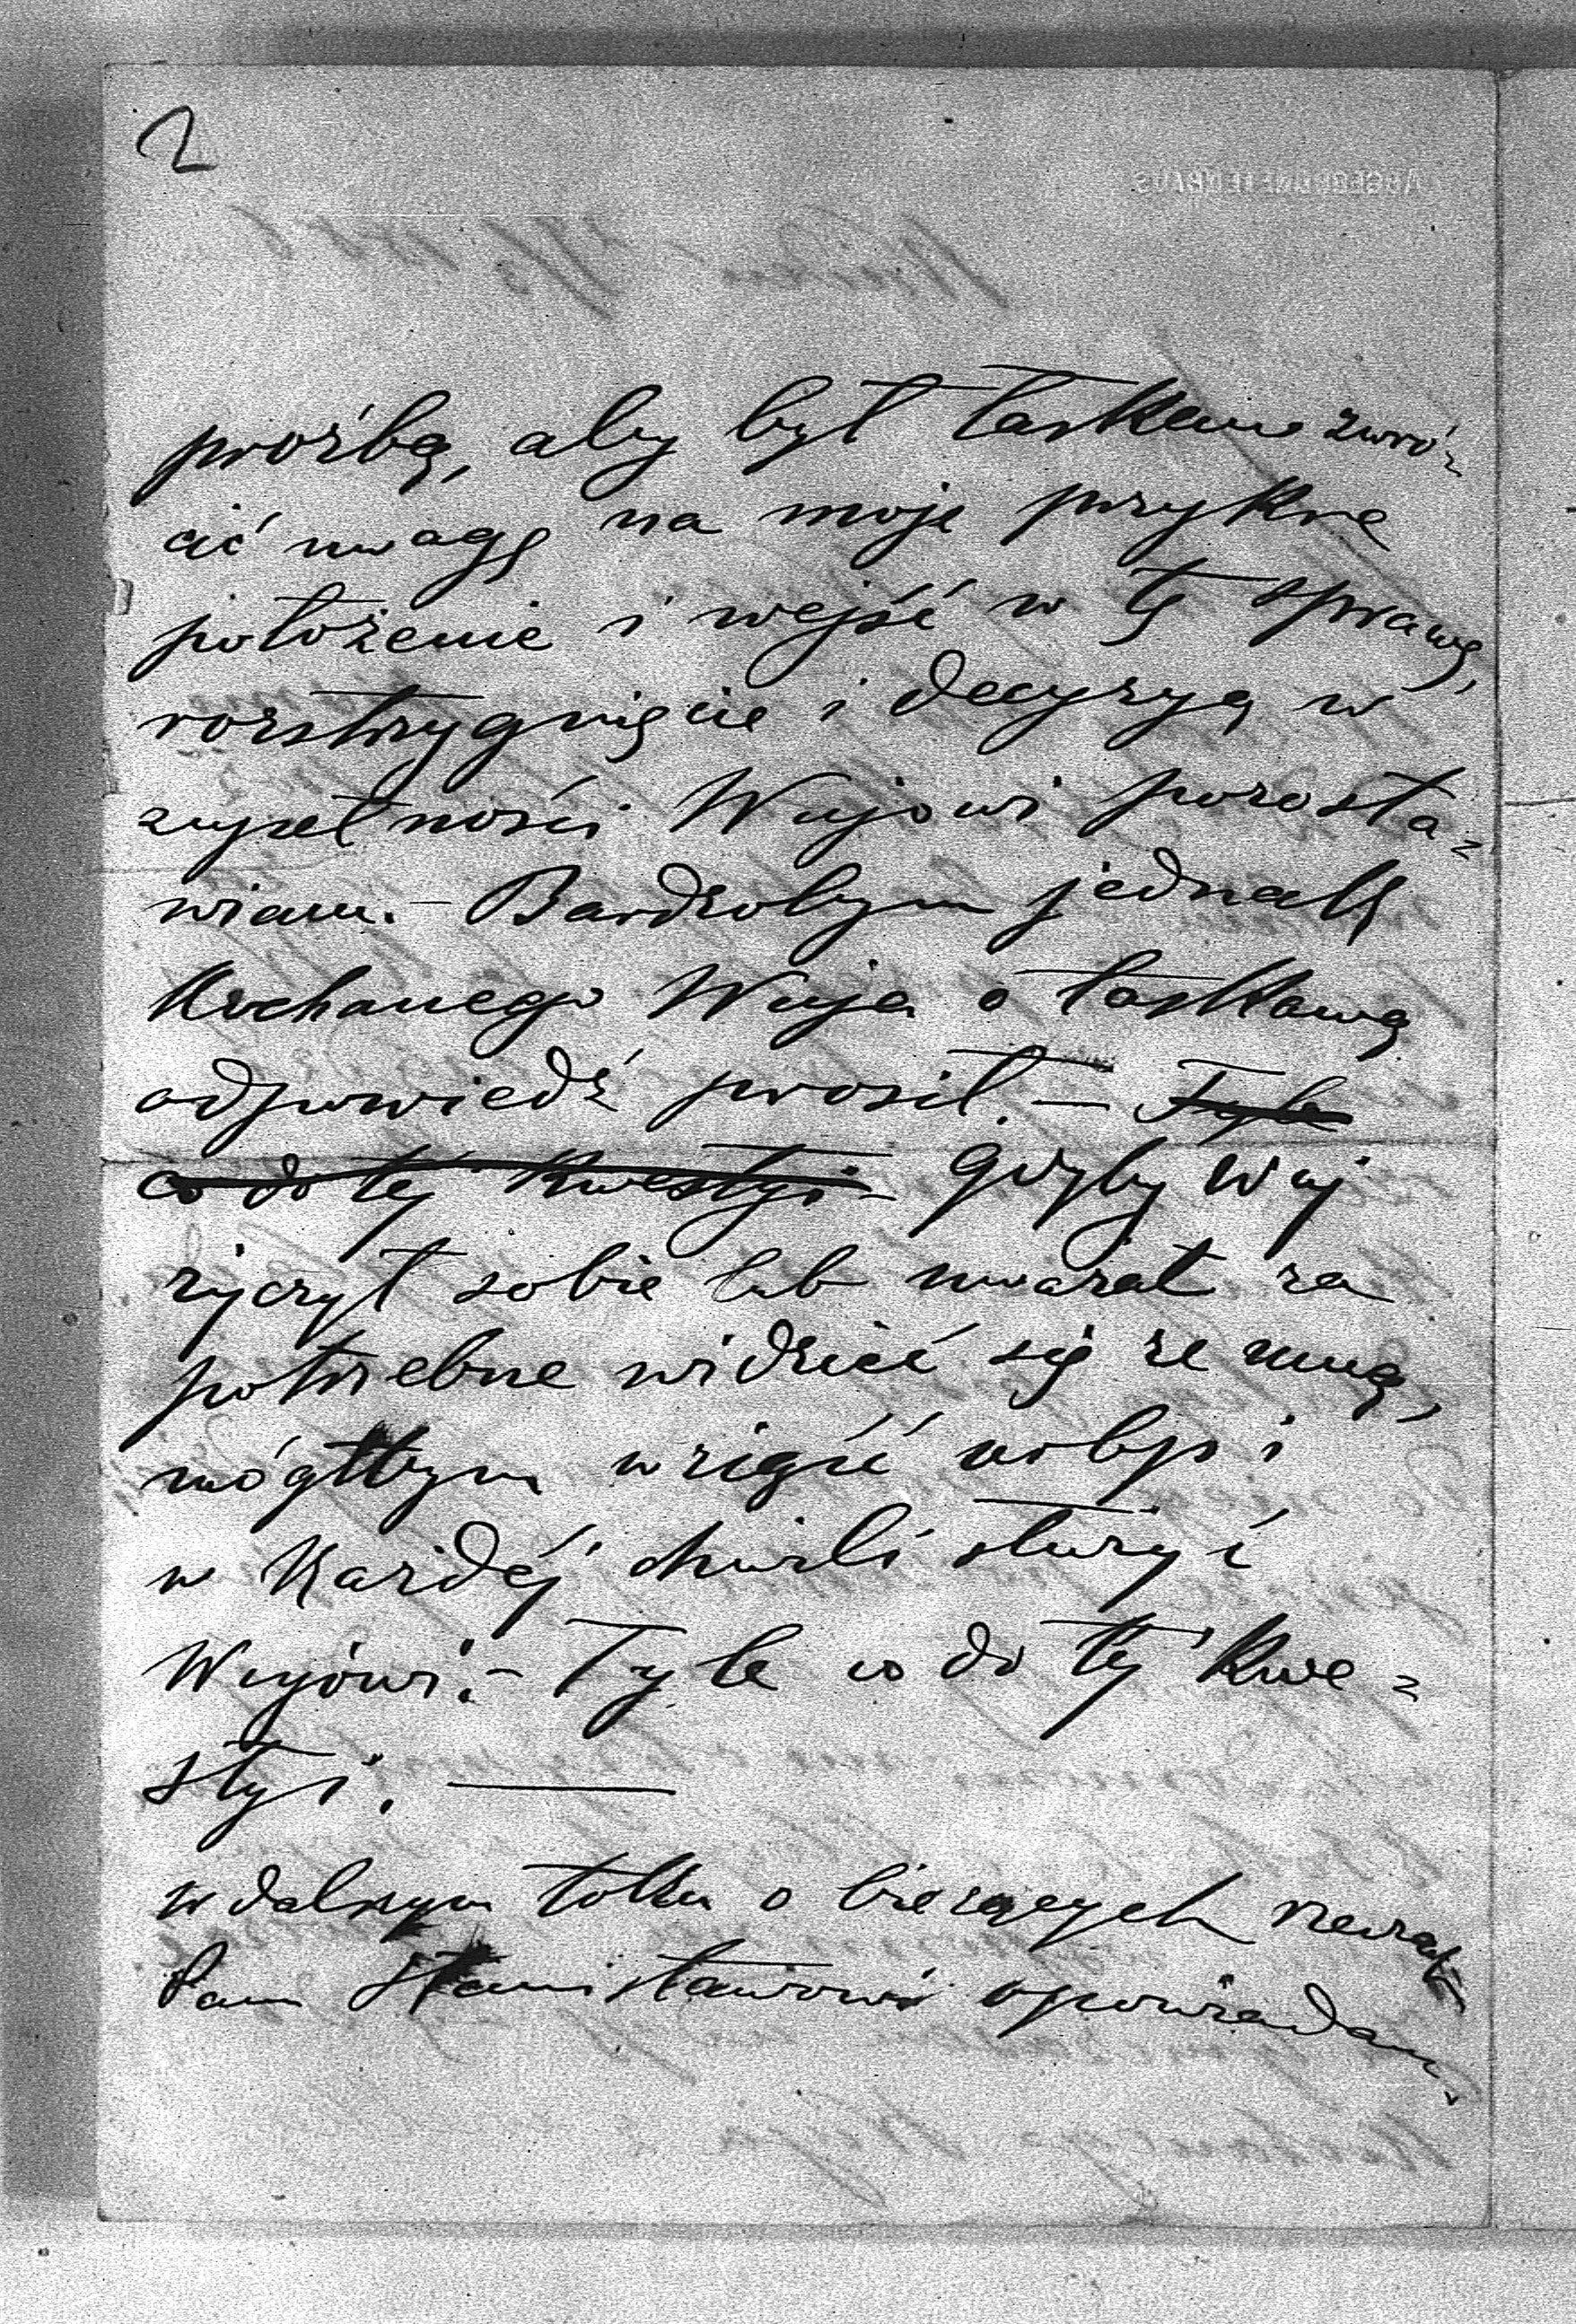 2
ABGEORDNETENHAUS
prośbą, aby był łaskaw zwró=
cić uwagę na moje przykre
położenie i wejść w tę sprawę,
rozstrzygnięcie i decyzyą w
zupełności Wujowi pozosta=
wiam. – Bardzobym jednak
Kochanego Wuja o łaskawą
odpowiedź prosił. – Tyle
co do tej kwestyi – gdyby Wuj
życzył sobie lub uważał za
potrzebne widzieć się ze mną,
mógłbym wziąść urlop i
w każdéj chwili służyć
Wujowi. – Tyle co do tej kwe=
styi. —
w dalszym tolku o bieżących
Panu Stanisławowi opowiadam.